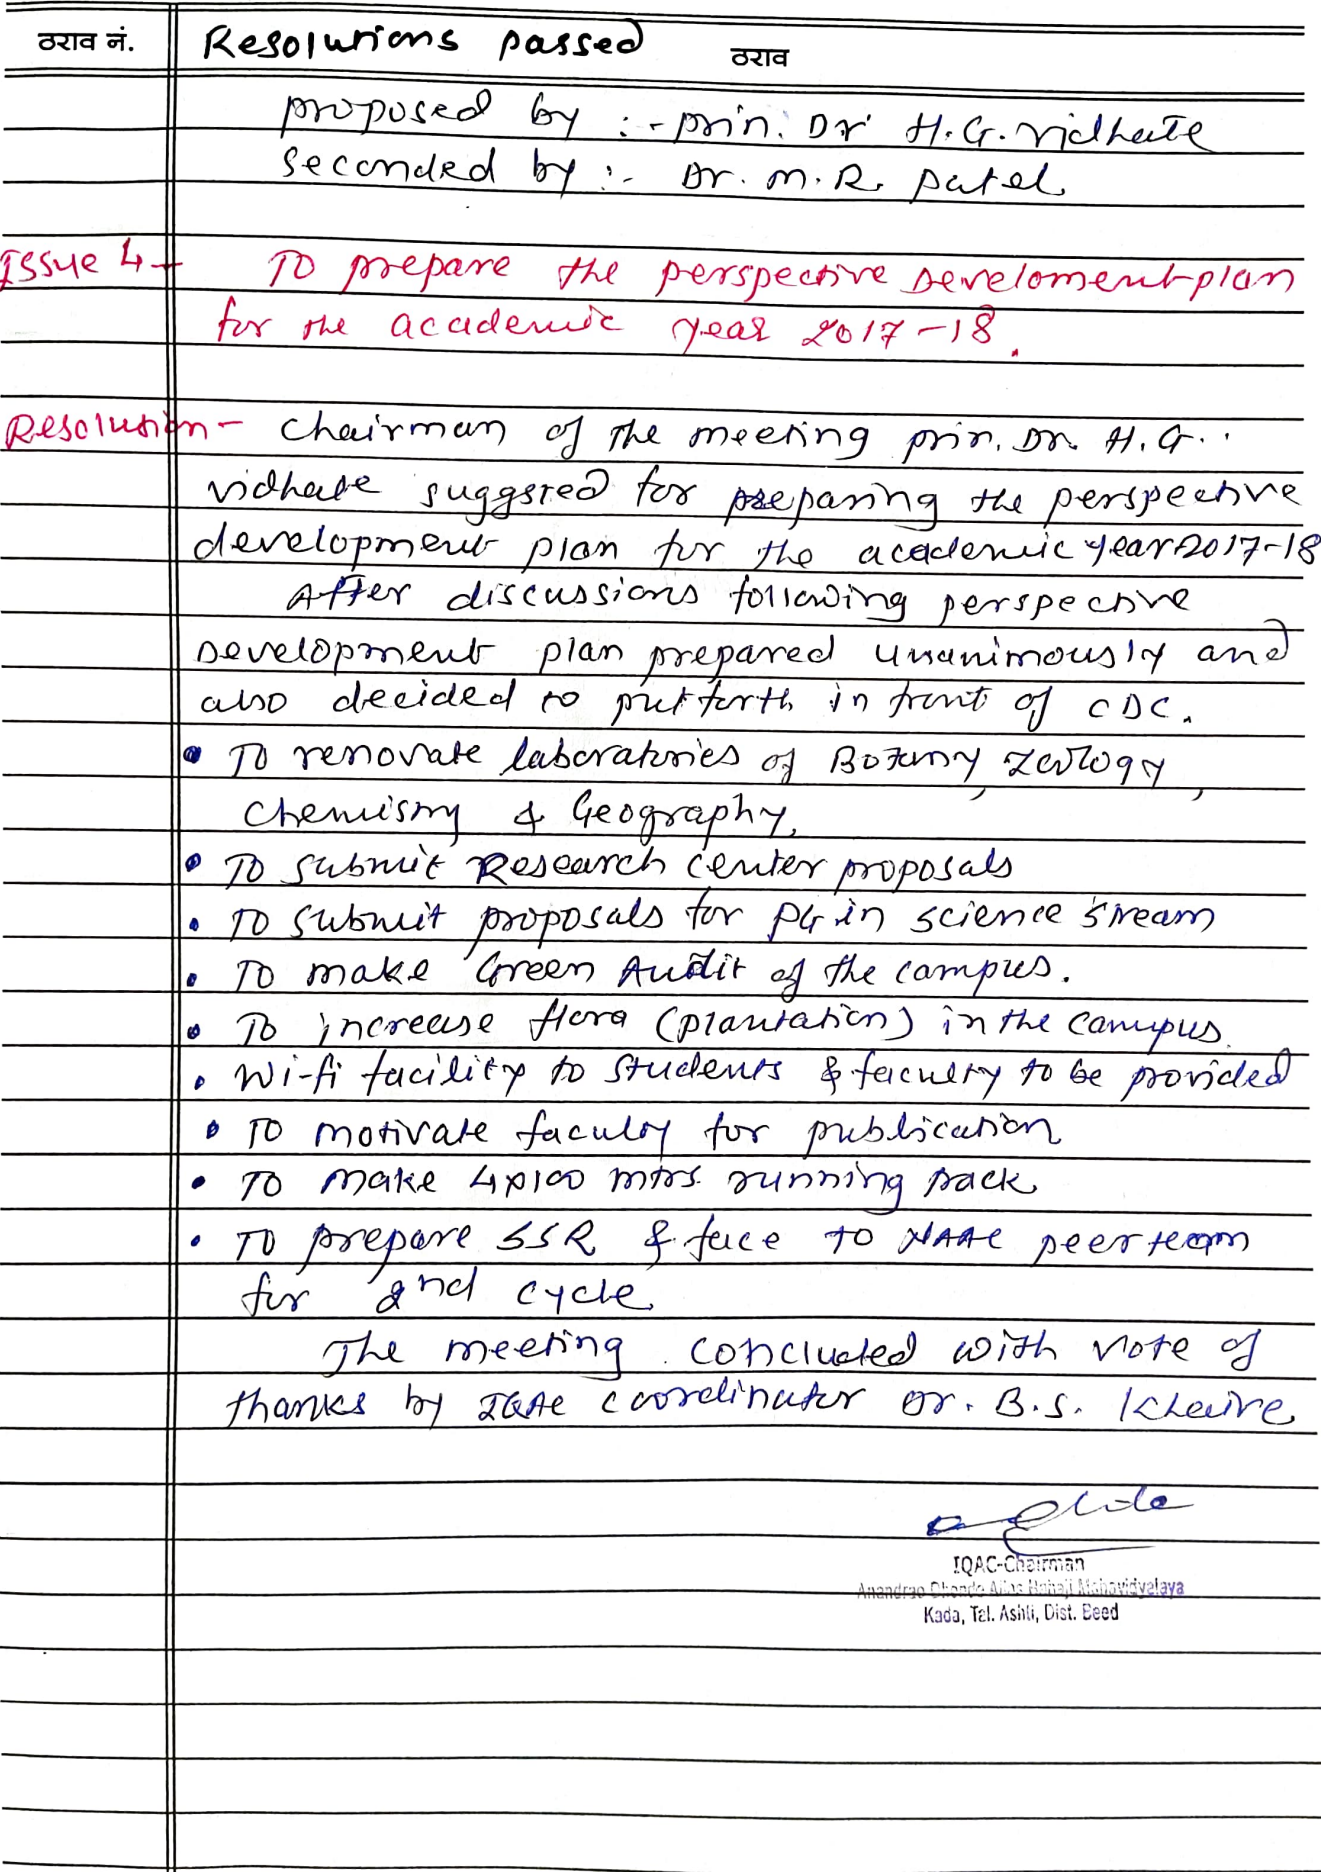 ठराव नं. Resolutions passed ठराव
proposed by :- prin. Dr H.G. Vidhate
Seconded by :- Dr. M.R. Patel
Issue 4 - To prepare the perspective Develoment plan
for the academic year 2017-18.
Resolution - Chairman of the meeting prin. Dr. H.G.
Vidhate suggsted for preparing the perspective
development plan for the academic year 2017-18
After discussions following perspective
Development plan prepared unanimously and
also decided to put forth in front of CDC.
• To renovate laboratories of Botany, Zoology,
Chemistry & Geography.
• To submit Research center proposals
• To submit proposals for PG in science stream
• To make Green Audit of the campus.
• To increase flora (plantation) in the campus.
• Wi-fi facility to students & faculty to be provided
• To motivate faculty for publication
• To make 4x100 mtrs. running track
• To prepare SSR & face to NAAC peer team
for 2nd cycle
The meeting concluded with vote of
thanks by IQAC coordinator Dr. B.S. Khaire
IQAC-Chairman
Anandrao Dhonde Alias Babaji Mahavidyalaya
Kada, Tal. Ashti, Dist. Beed